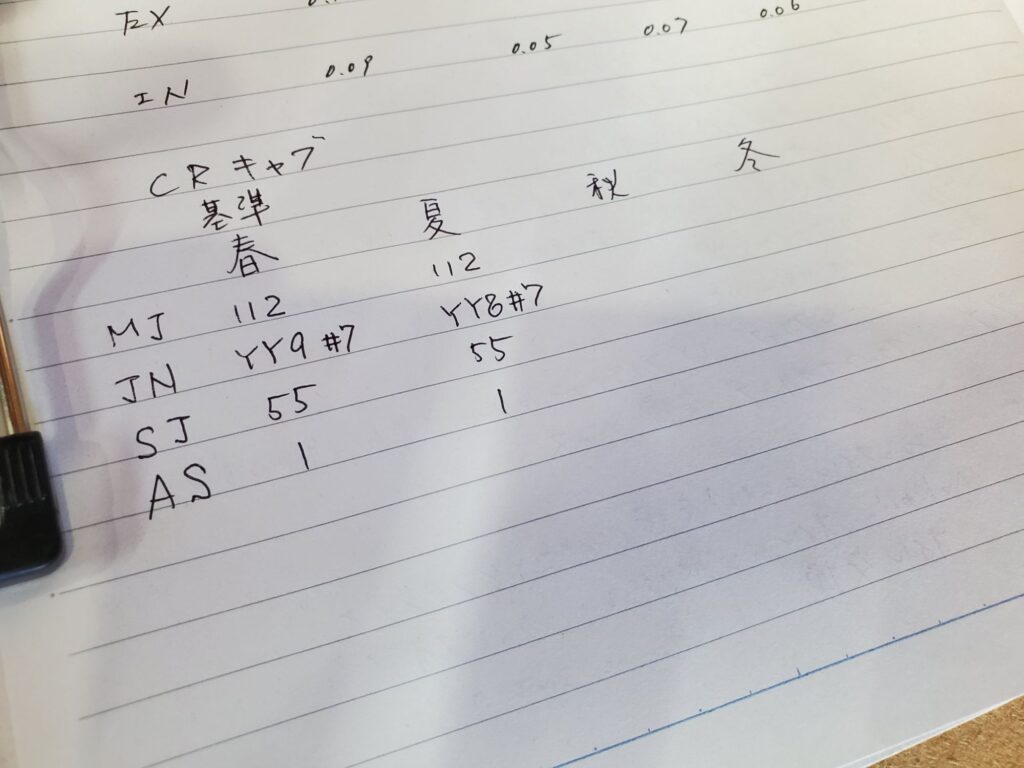 EX
IN 0.09 0.05 0.07 0.06
CRキャブ
基準
春 夏 秋 冬
MJ 112 112
JN YY9 #7 YY8#7
SJ 55 55
AS 1 1